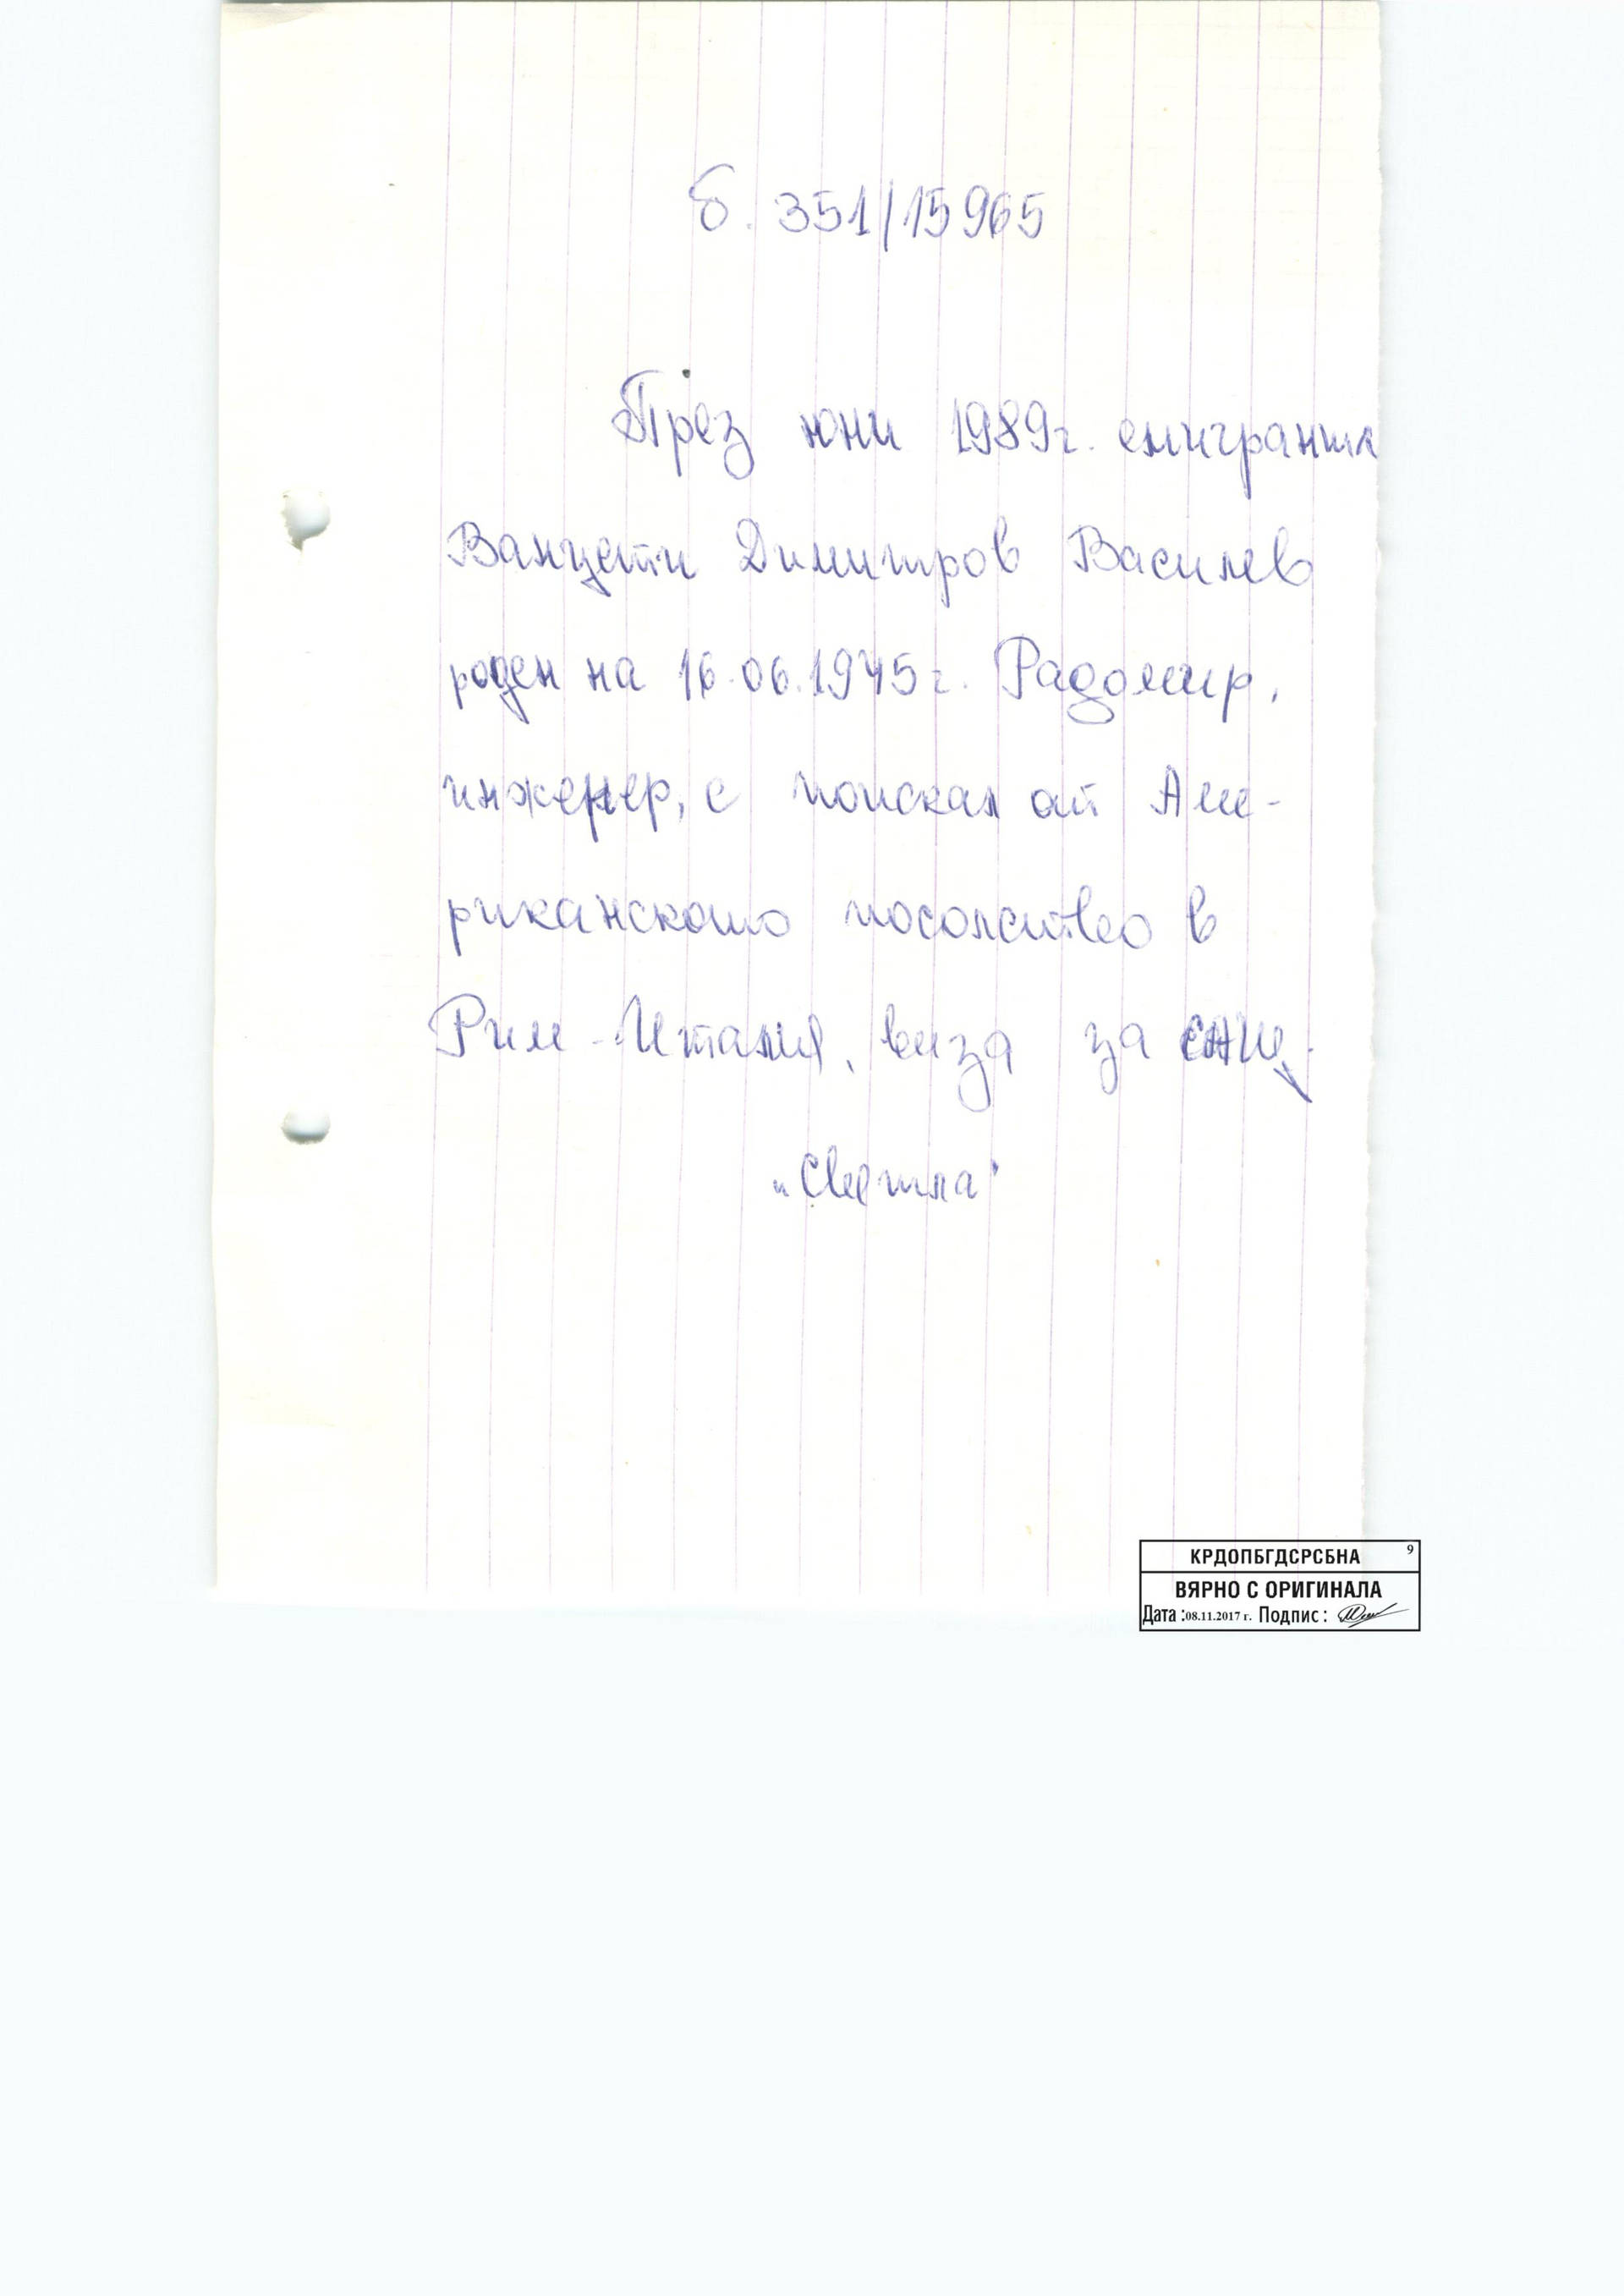 б. 351/15965
През юни 1989г. емигранта
Ванцети Димитров Василев
роден на 16.06.1945г. Радомир,
инженер, е поискал от Аме-
риканското посолство в
Рим - Италия, виза за САЩ.
"Светла"
КРДОПБГДСРСБНА 9
ВЯРНО С ОРИГИНАЛА
Дата : 08.11.2017 г. Подпис :